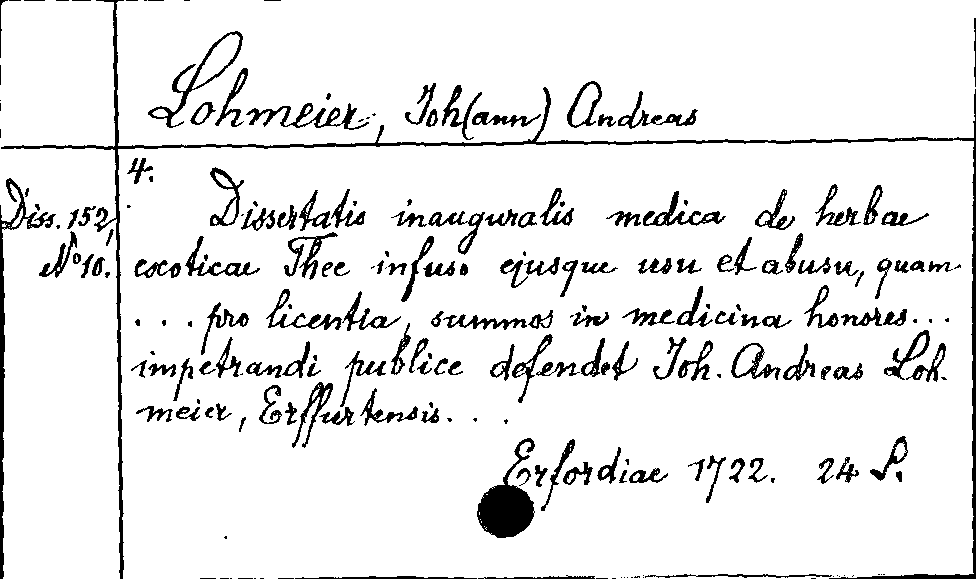 Lohmeier, Joh(ann) Andreas
4.
Diss. 152,
No 10.
Dissertatio inauguralis medica de herbae
exoticae Thee infuso ejusque usu et abusu, quam
... pro licentia, summos in medicina honores...
impetrandi publice defendet Joh. Andreas Loh-
meier, Erffurtensis...
Erfordiae 1722. 24 S.